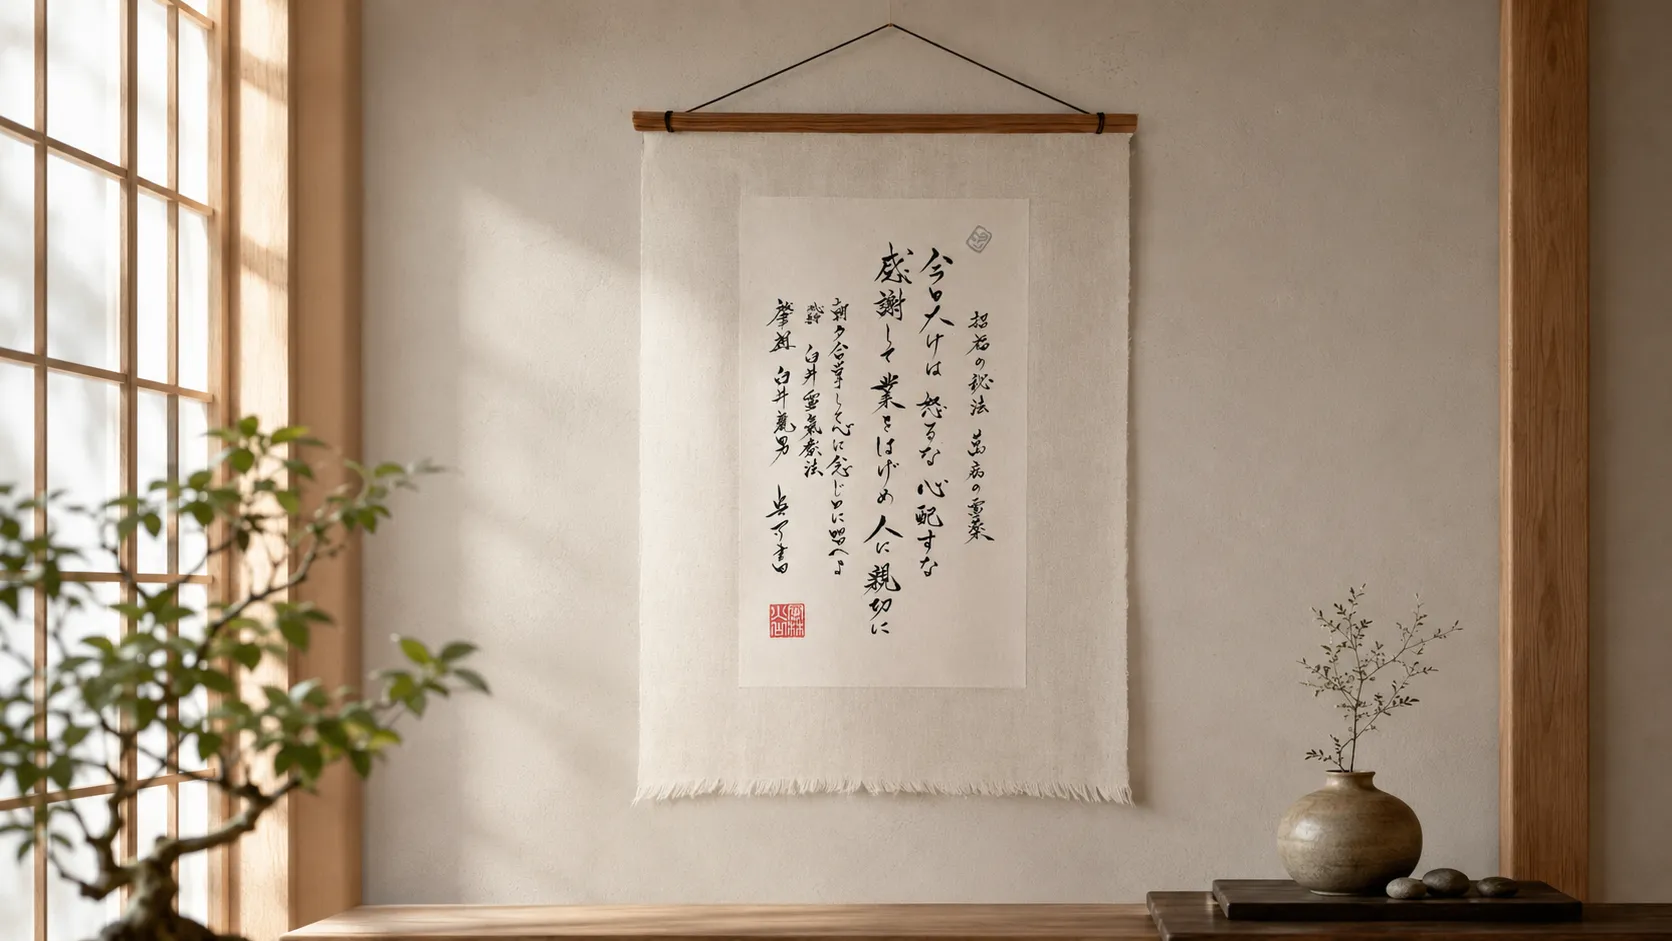 招福の秘法 萬病の霊薬
今日丈けは 怒るな 心配すな
感謝して 業をはげめ 人に親切に
朝夕合掌して心に念じ口に唱へよ
臼井靈氣療法
肇祖 臼井甕男